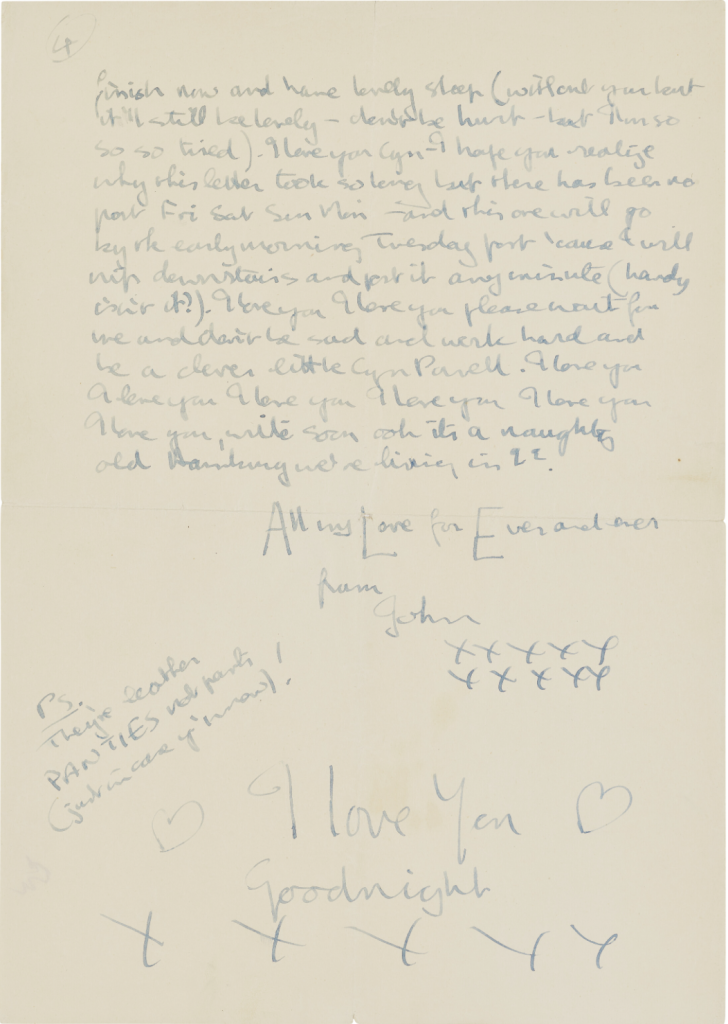 4
finish now and have lovely sleep (without you but
it'll still be lovely – don't be hurt – but I'm so
so so tired). I love you Cyn – I hope you realize
why this letter took so long but there has been no
post Fri Sat Sun Mon – and this one will go
by the early morning Tuesday post 'cause I will
nip downstairs and post it any minute (handy
isn't it?). I love you I love you please wait for
me and don't be sad and work hard and
be a clever little Cyn Powell. I love you
I love you I love you I love you I love you
I love you, write soon ooh its a naughty
old Hamburg we're living in !!.
All my Love for Ever and ever
from
John
xxxxx
xxxxx
P.S.
They're leather
PANTIES not pants
(just in case y'know)!
I love You
Goodnight
X X X X X